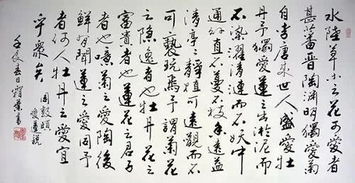 水陸草木之花可愛者
甚蕃晉陶淵明獨愛菊
自李唐來世人盛愛牡
丹予獨愛蓮之出淤泥而
不染濯清漣而不妖中
通外直不蔓不枝香遠益
清亭亭靜植可遠觀而不
可褻玩焉予謂菊花
之隱逸者也牡丹花之
富貴者也蓮花之君子
者也噫菊之愛陶後
鮮有聞蓮之愛同予
者何人牡丹之愛宜
乎衆矣
周敦頤
愛蓮説
春日
書